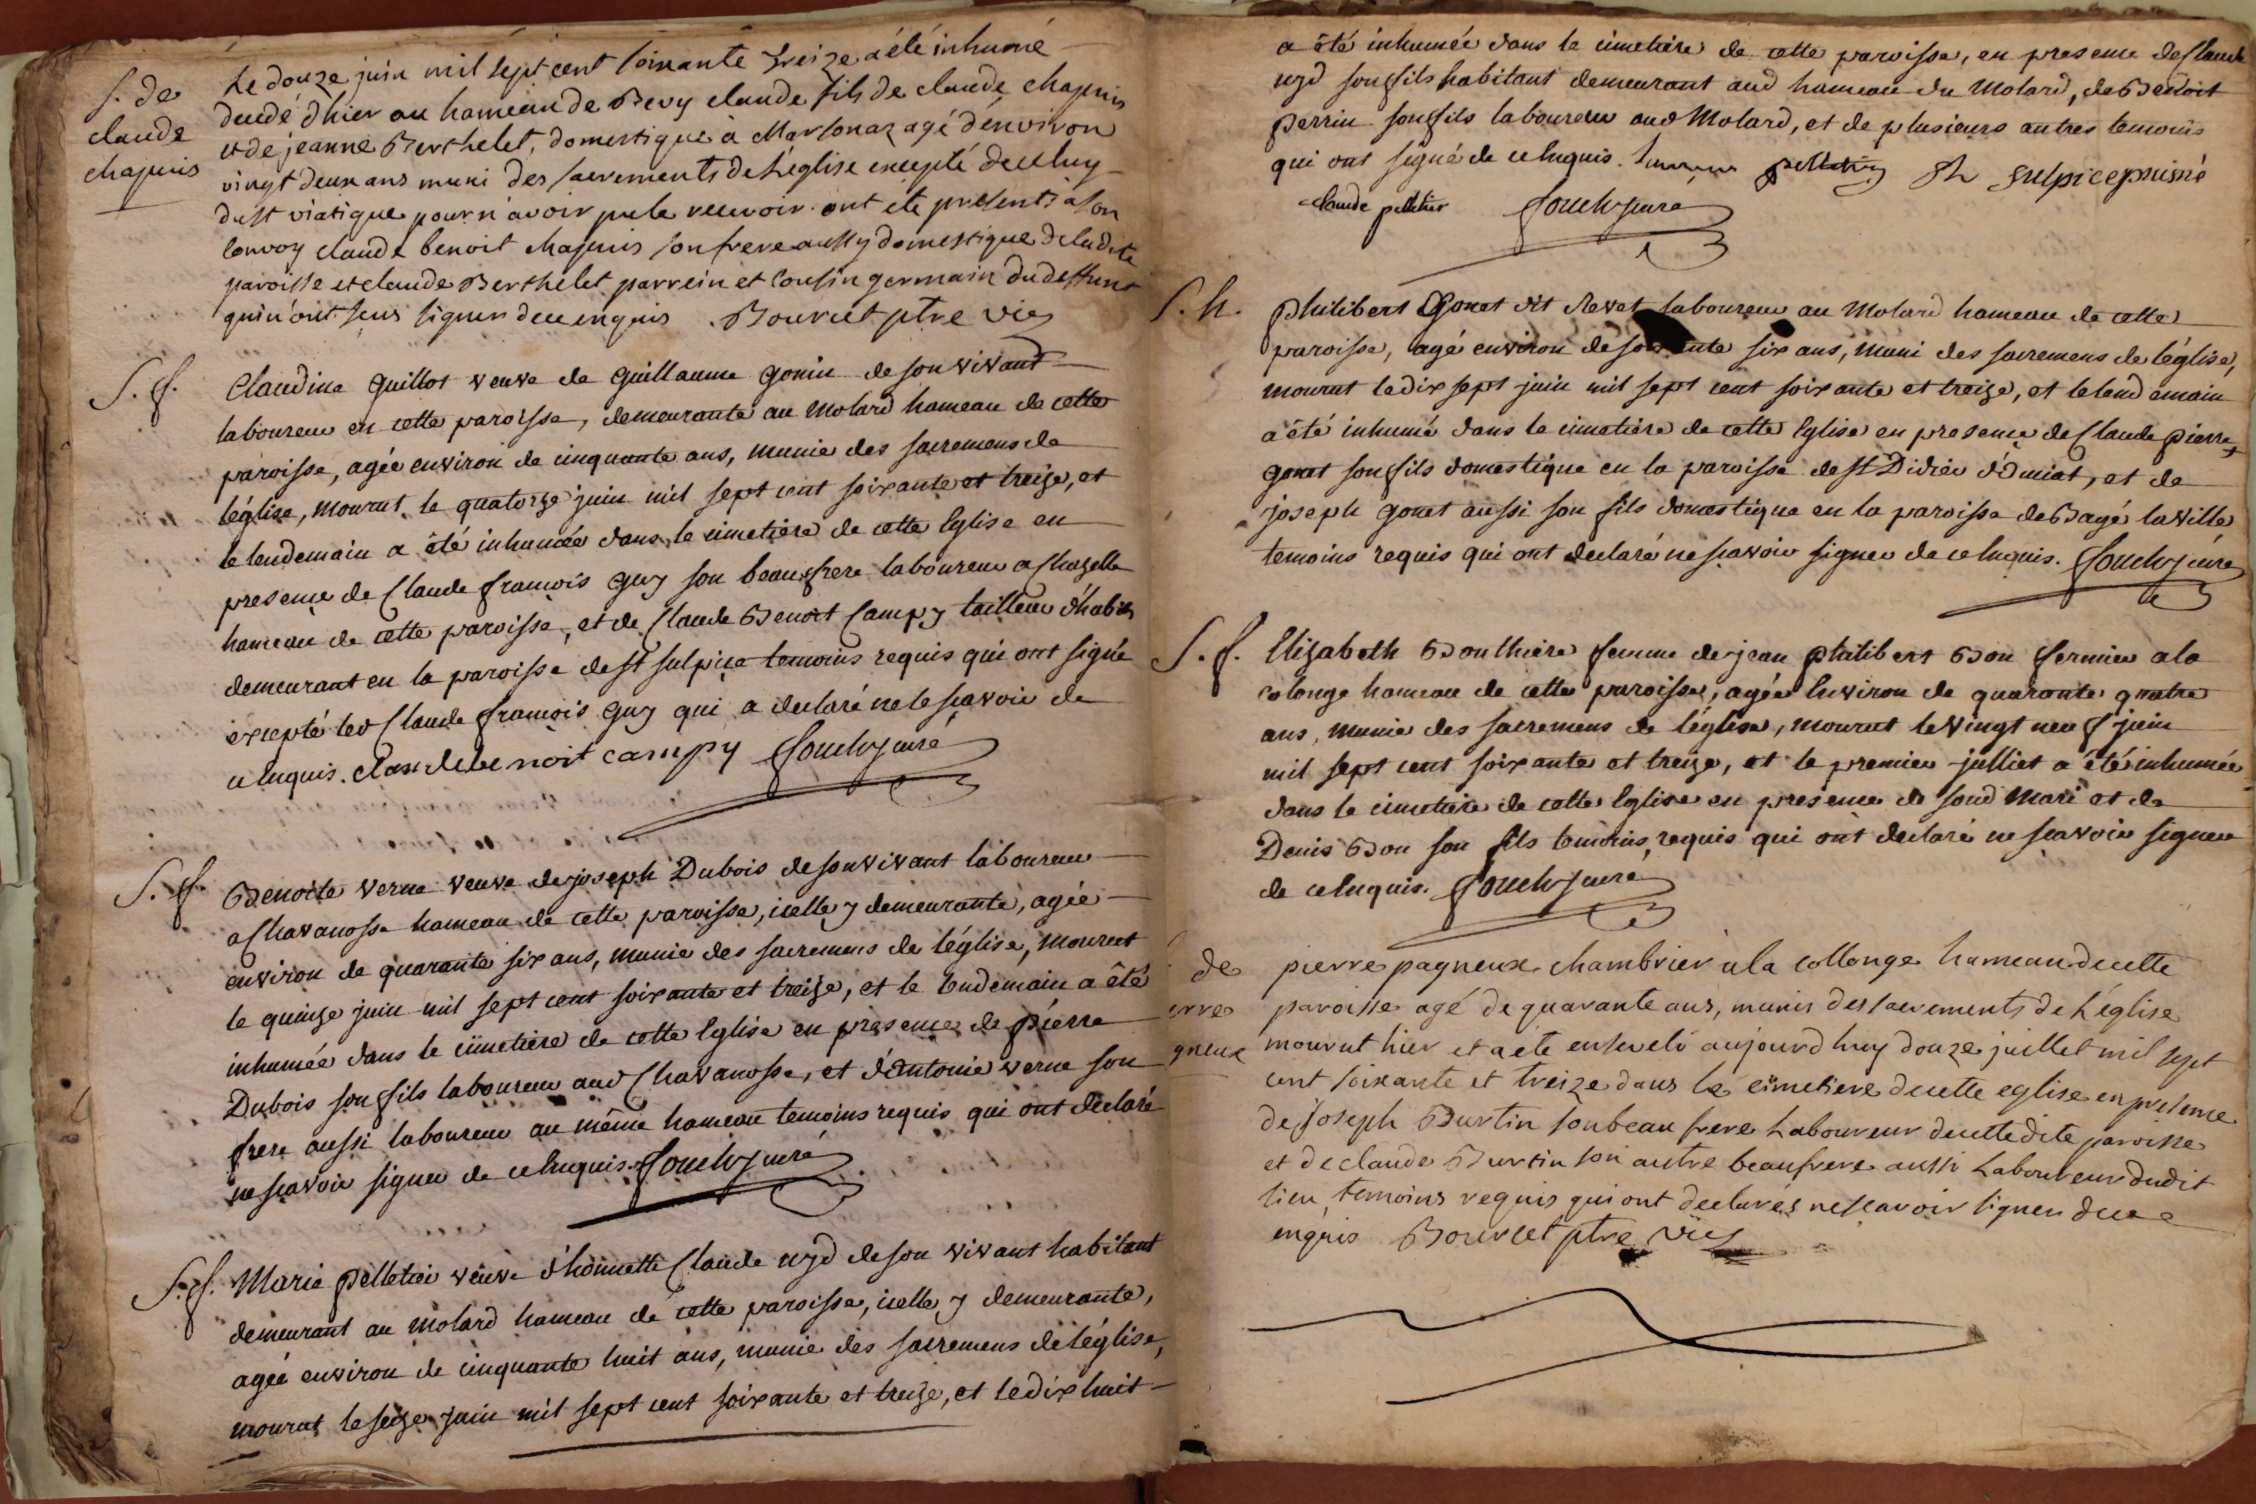 S. de
claude
chapuis
Le douze juin mil sept cent soixante treize a été inhumé
decedé d'hier au hameau de Bevy claude fils de claude chapuis
et de jeanne Berthelet, domestique à Marsonaz agé d'environ
vingt deux ans muni des sacrements de L'église excepté de celuy
du st viatique pour n'avoir pu le recevoir. ont eté presents a son
convoy claude benoit chapuis son frere aussy domestique de ladite
paroisse et claude Berthelet parrein et cousin germain du deffunt
qui n'ont sçus signer de ce enquis Bourcet ptre vic
S. f.
Claudine Guillot veuve de Guillaume Gonin de son vivant
laboureur en cette paroisse, demeurante au Molard hameau de cette
paroisse, agée environ de cinquante ans, munie des sacremens de
léglise, mourut le quatorze juin mil sept cent soixante et treize, et
le lendemain a été inhumée dans le cimetiere de cette Eglise en
presence de Claude françois Guy son beaufrere laboureur a Chazelle
hameau de cette paroisse, et de Claude Benoit Campy tailleur d'habits
demeurant en la paroisse de st sulpice temoins requis qui ont signé
excepté led Claude françois Guy qui a declaré ne le sçavoir de
ce Enquis. Claudebenoit campy curé
S. f.
Benoite verne veuve de joseph Dubois de son vivant laboureur
a Chavanosse hameau de cette paroisse, icelle y demeurante, agée
environ de quarante six ans, munie des sacremens de léglise, mourut
le quinze juin mil sept cent soixante et treize, et le lendemain a été
inhumée dans le cimetiere de cette Eglise en presence de pierre
Dubois son fils laboureur aud Chavanosse, et d'Antoine verne son
frere aussi laboureur au même hameau temoins requis qui ont déclaré
ne sçavoir signer de ce Enquis. curé
S. f.
Marie pelletier veuve d'honnette Claude uyd de son vivant habitant
demeurant au Molard hameau de cette paroisse, icelle y demeurante,
agée environ de cinquante huit ans, munie des sacremens de léglise,
mourut le seize juin mil sept cent soixante et treize, et le dix huit
a été inhumée dans le cimetiere de cette paroisse, en presence de Claude
uyd son fils habitant demeurant aud hameau du Molard, de Benoit
perrin son fils laboureur aud Molard, et de plusieurs autres temoins
qui ont signé de ce Enquis. pelletier sulpice puisné
claude pelletier curé
S. h.
Philibert Gonet dit Revet laboureur au Molard hameau de cette
paroisse, agé environ de soixante six ans, muni des sacremens de léglise,
mourut le dix sept juin mil sept cent soixante et treize, et le lendemain
a été inhumé dans le cimetiere de cette Eglise en presence de Claude pierre
Gonet son fils domestique en la paroisse de st Didier d'Aumiat, et de
joseph Gonet aussi son fils domestique en la paroisse de Bagé la ville
temoins requis qui ont declaré ne sçavoir signer de ce Enquis. curé
S. f.
Elizabeth Boulhiere femme de jean philibert Bon fermier a la
colonge hameau de cette paroisse, agée Environ de quarante quatre
ans, munie des sacremens de léglise, mourut le vingt neuf juin
mil sept cent soixante et treize, et le premier julliet a été inhumée
dans le cimetiere de cette Eglise en presence de soud Mari et de
Denis Bon son fils temoins requis qui ont declaré ne sçavoir signer
de ce Enquis. curé
de
erre
gneux
pierre pagneux chambrier a la collonge hameau de cette
paroisse agé de quarante ans, munis des sacrements de L'église
mourut hier et a eté enseveli aujourd huy douze juillet mil sept
cent soixante et treize dans le cimetiere de cette eglise en presence
de Joseph Burtin son beau frere Laboureur de cette dite paroisse
et de claude Burtin son autre beaufrere aussi Laboureur dudit
lieu temoins requis qui ont declarés ne sçavoir signer de ce
enquis Bourcet ptre vic